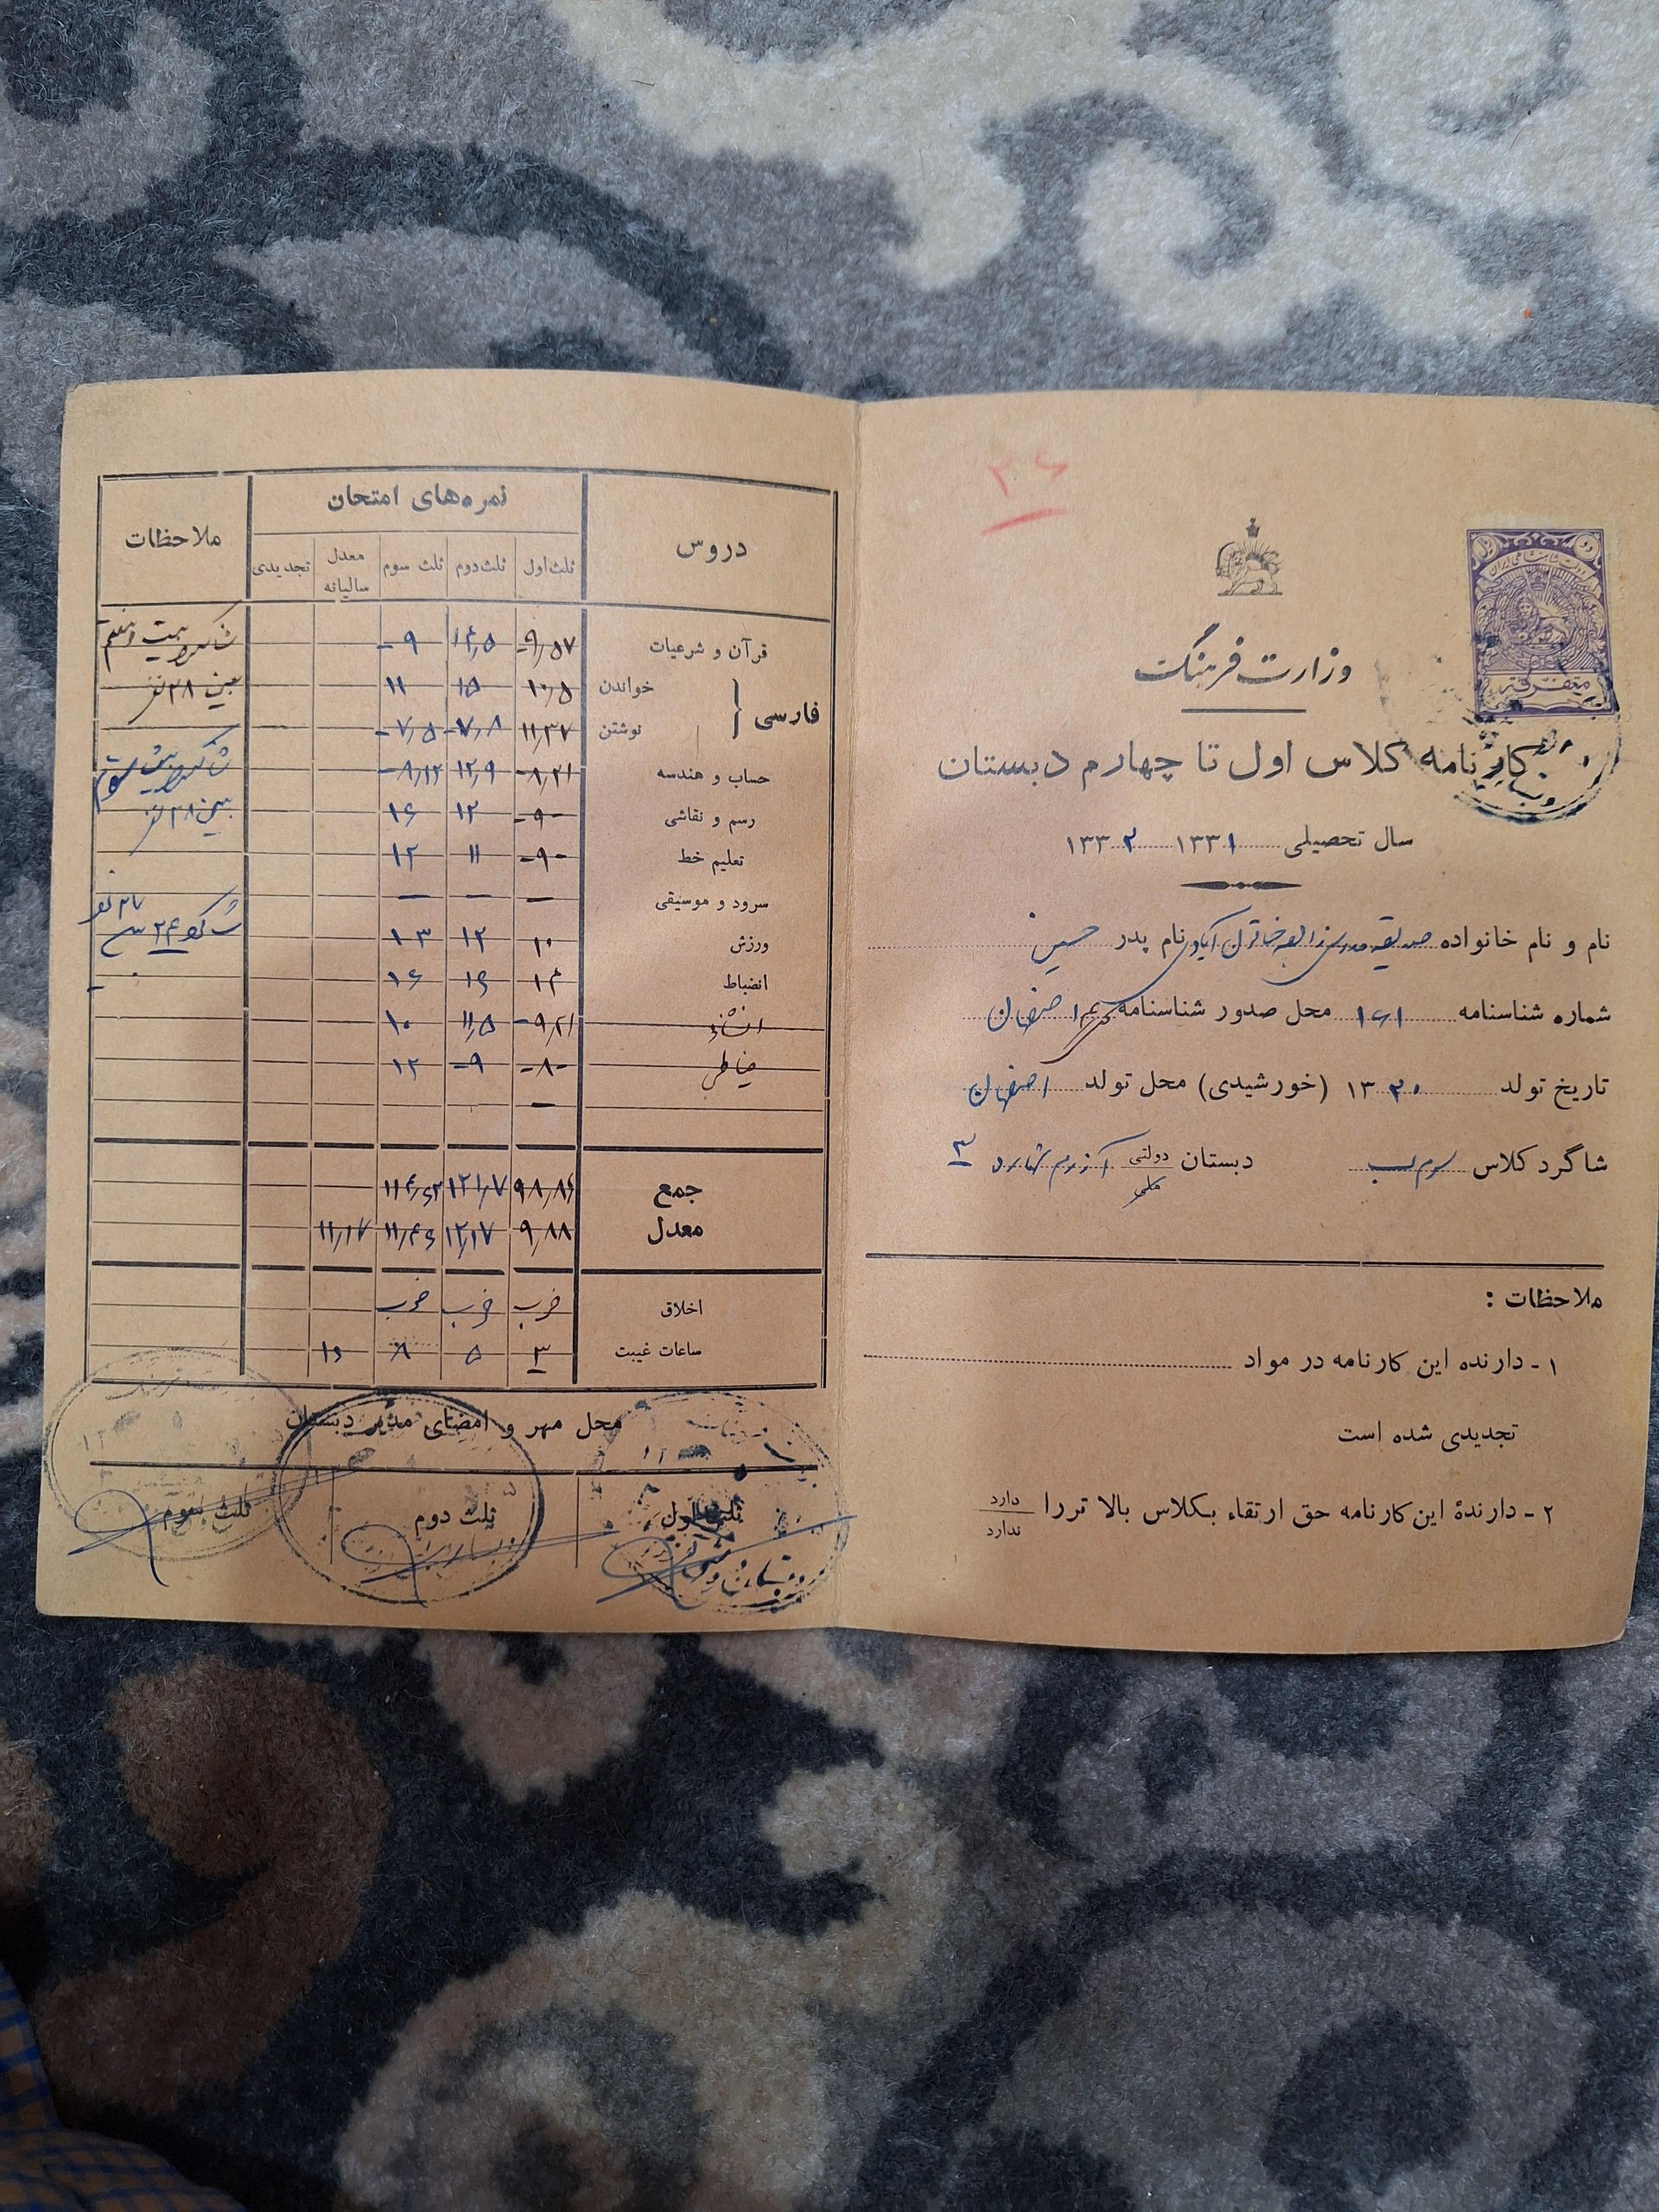 ۳۶
دولت شاهنشاهی ایران
متفرقه
وزارت فرهنگ
کارنامه کلاس اول تا چهارم دبستان
سال تحصیلی ۱۳۳۱ ۱۳۳۲
نام و نام خانواده صدیقه نام پدر حسین
شماره شناسنامه ۱۶۱ محل صدور شناسنامه اصفهان
تاریخ تولد ۱۳۲۰ (خورشیدی) محل تولد اصفهان
شاگرد کلاس سوم ب دبستان دولتی ملی آزرم شماره ۳
ملاحظات :
۱ - دارنده این کارنامه در مواد
تجدیدی شده است
۲ - دارندهٔ این کارنامه حق ارتقاء بکلاس بالا تر را دارد ندارد
دروس نمره‌های امتحان ملاحظات
ثلث اول ثلث دوم ثلث سوم معدل سالیانه تجدیدی
قرآن و شرعیات ۹٫۵۷ ۱۴٫۵ ۹
فارسی خواندن ۱۰٫۵ ۱۵ ۱۱ بین ۲۸ نفر
نوشتن ۱۱٫۳۷ ۷٫۸ ۷٫۵
حساب و هندسه ۸٫۲۱ ۱۲٫۹ ۸٫۱۲
رسم و نقاشی ۹ ۱۲ ۱۶ بین ۲۸ نفر
تعلیم خط ۹ ۱۱ ۱۲
سرود و موسیقی — — —
ورزش ۱۰ ۱۲ ۱۳
انضباط ۱۴ ۱۶ ۱۶
انشاء ۹٫۲۱ ۱۱٫۵ ۱۰
خیاطی ۸ ۹ ۱۲
جمع ۹۸٫۸۶ ۱۲۱٫۷ ۱۱۴٫۶۲
معدل ۹٫۸۸ ۱۲٫۱۷ ۱۱٫۴۶ ۱۱٫۱۷
اخلاق خوب خوب خوب
ساعات غیبت ۳ ۵ ۸ ۱۶
محل مهر و امضای مدیر دبستان
ثلث اول ثلث دوم ثلث سوم